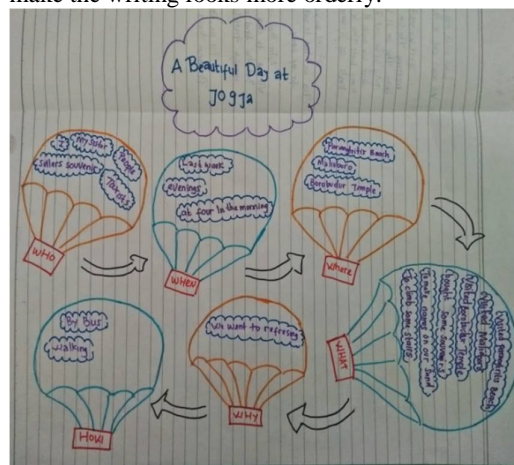 make the writing looks more orderly.
A Beautiful Day at
Jogja
I
My Sister
People
Sellers Souvenir
Tourists
WHO
Last week
evenings
at four in the morning
WHEN
Parangtritis Beach
Malioboro
Borobudur Temple
Where
Visited Parangtritis Beach
Visited Malioboro
Visited Borobudur Temple
bought some souvenirs
To write names on
sand
To climb some stairs
WHAT
We want to refresing
WHY
By Bus
Walking
HOW